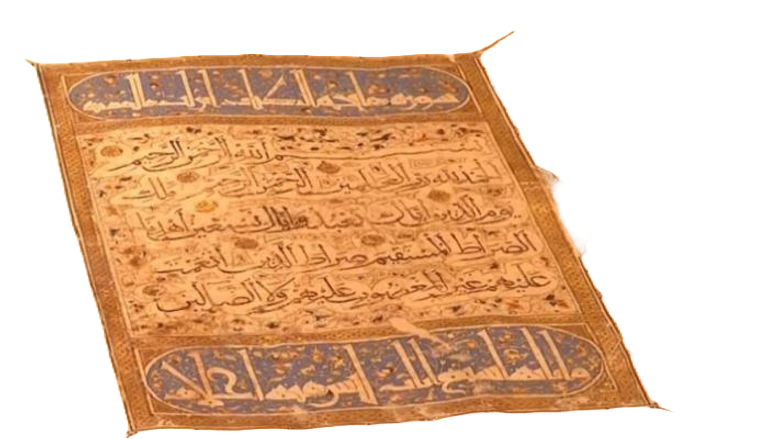 سورة فاتحة الكتاب
بسم الله الرحمن الرحيم
الحمد لله رب العلمين الرحمن الرحيم ملك
يوم الدين اياك نعبد واياك نستعين اهدنا
الصراط المستقيم صراط الذين انعمت
عليهم غير المغضوب عليهم ولا الضالين